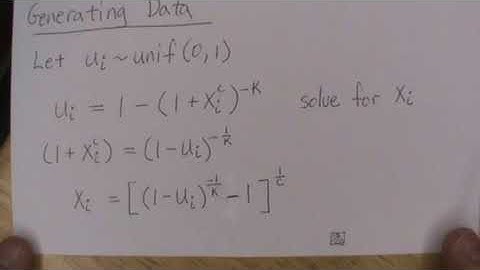 Generating Data
Let uᵢ ~ unif(0,1)
uᵢ = 1 - (1 + xᵢᶜ)⁻ᴷ solve for xᵢ
(1 + xᵢᶜ) = (1 - uᵢ)^(-1/K)
xᵢ = [(1 - uᵢ)^(-1/K) - 1]^(1/c)